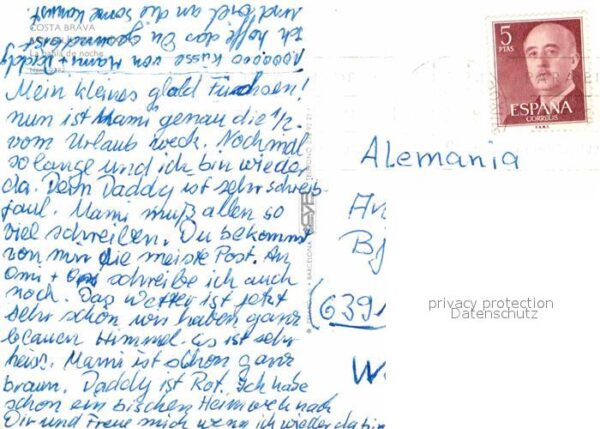 COSTA BRAVA
La bahía de noche
und viel an die Sonne kommst.
Ich hoffe das Du gesund bist
1000000 Küsse von Mami + Daddy
Mein kleines gold Füchsen!
nun ist Mami genau die 1/2.
vom Urlaub weck. Nochmal
solange und ich bin wieder
da. Dein Daddy ist sehr schreib
faul. Mami muß allen so
viel schreiben. Du bekommst
von mir die meiste Post. An
Omi + Opi schreibe ich auch
noch. Das Wetter ist jetzt
sehr schön wir haben ganz
blauen Himmel. Es ist sehr
heis. Mami ist schon ganz
braun. Daddy ist Rot. Ich habe
schon ein bischen Heimweh nach
Dir und Freue mich wenn ich wieder da bin
5
PTAS
ESPAÑA
CORREOS
Alemania
An
Bj
(639
W
BARCELONA
privacy protection
Datenschutz